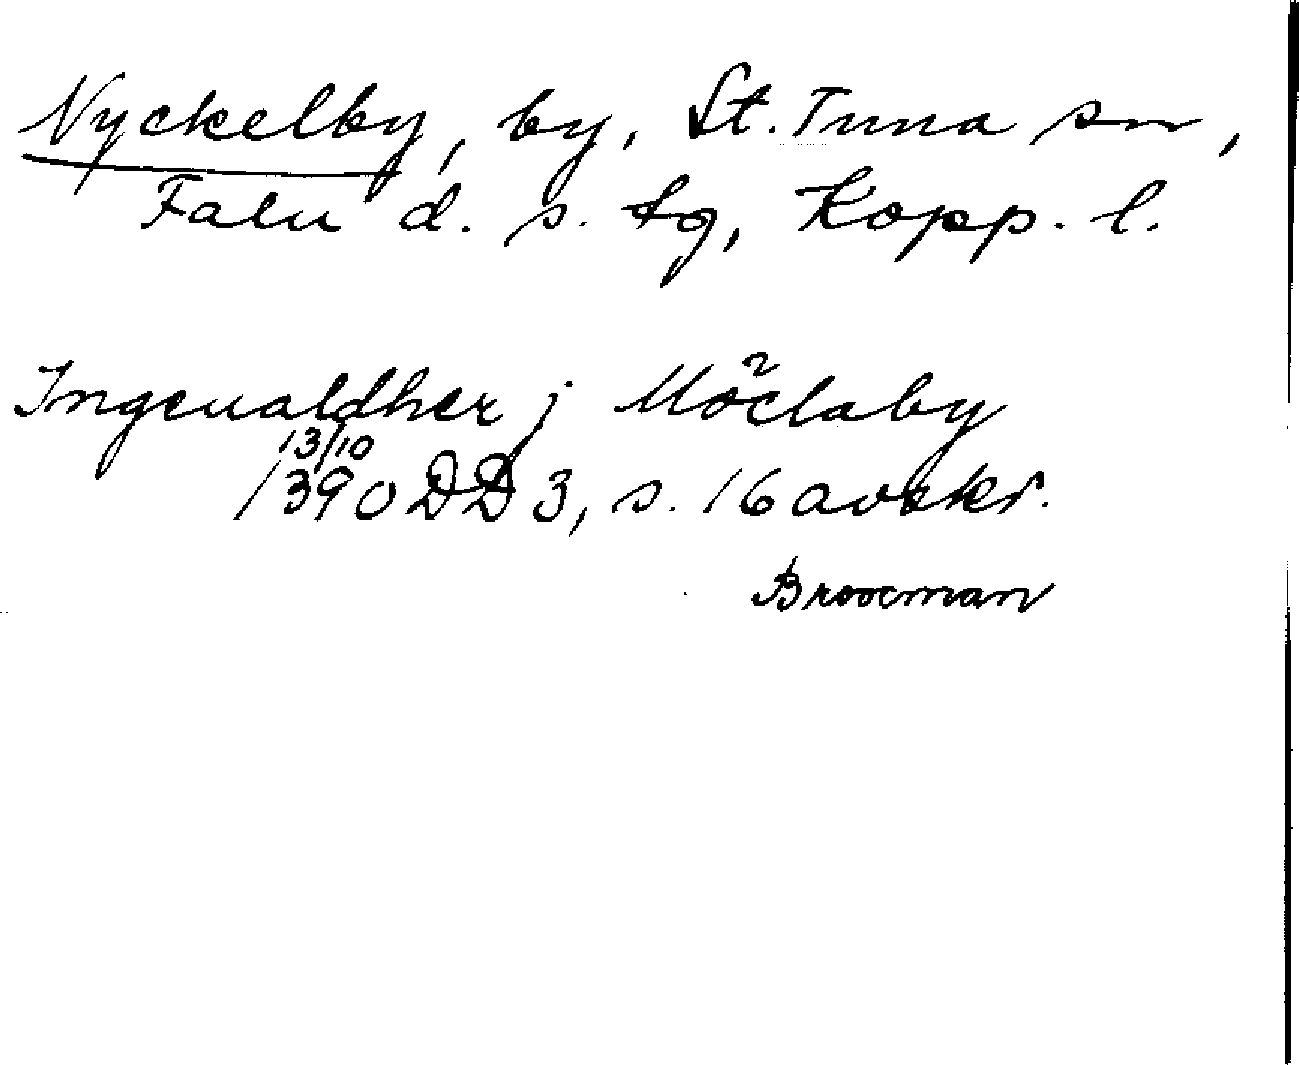 Nyckelby, by, St. Tuna sn,
Falu d. s. tg, Kopp. l.
Ingeualdher j Möclaby
13/10
1390 DD 3, s. 16 avskr.
Broocman